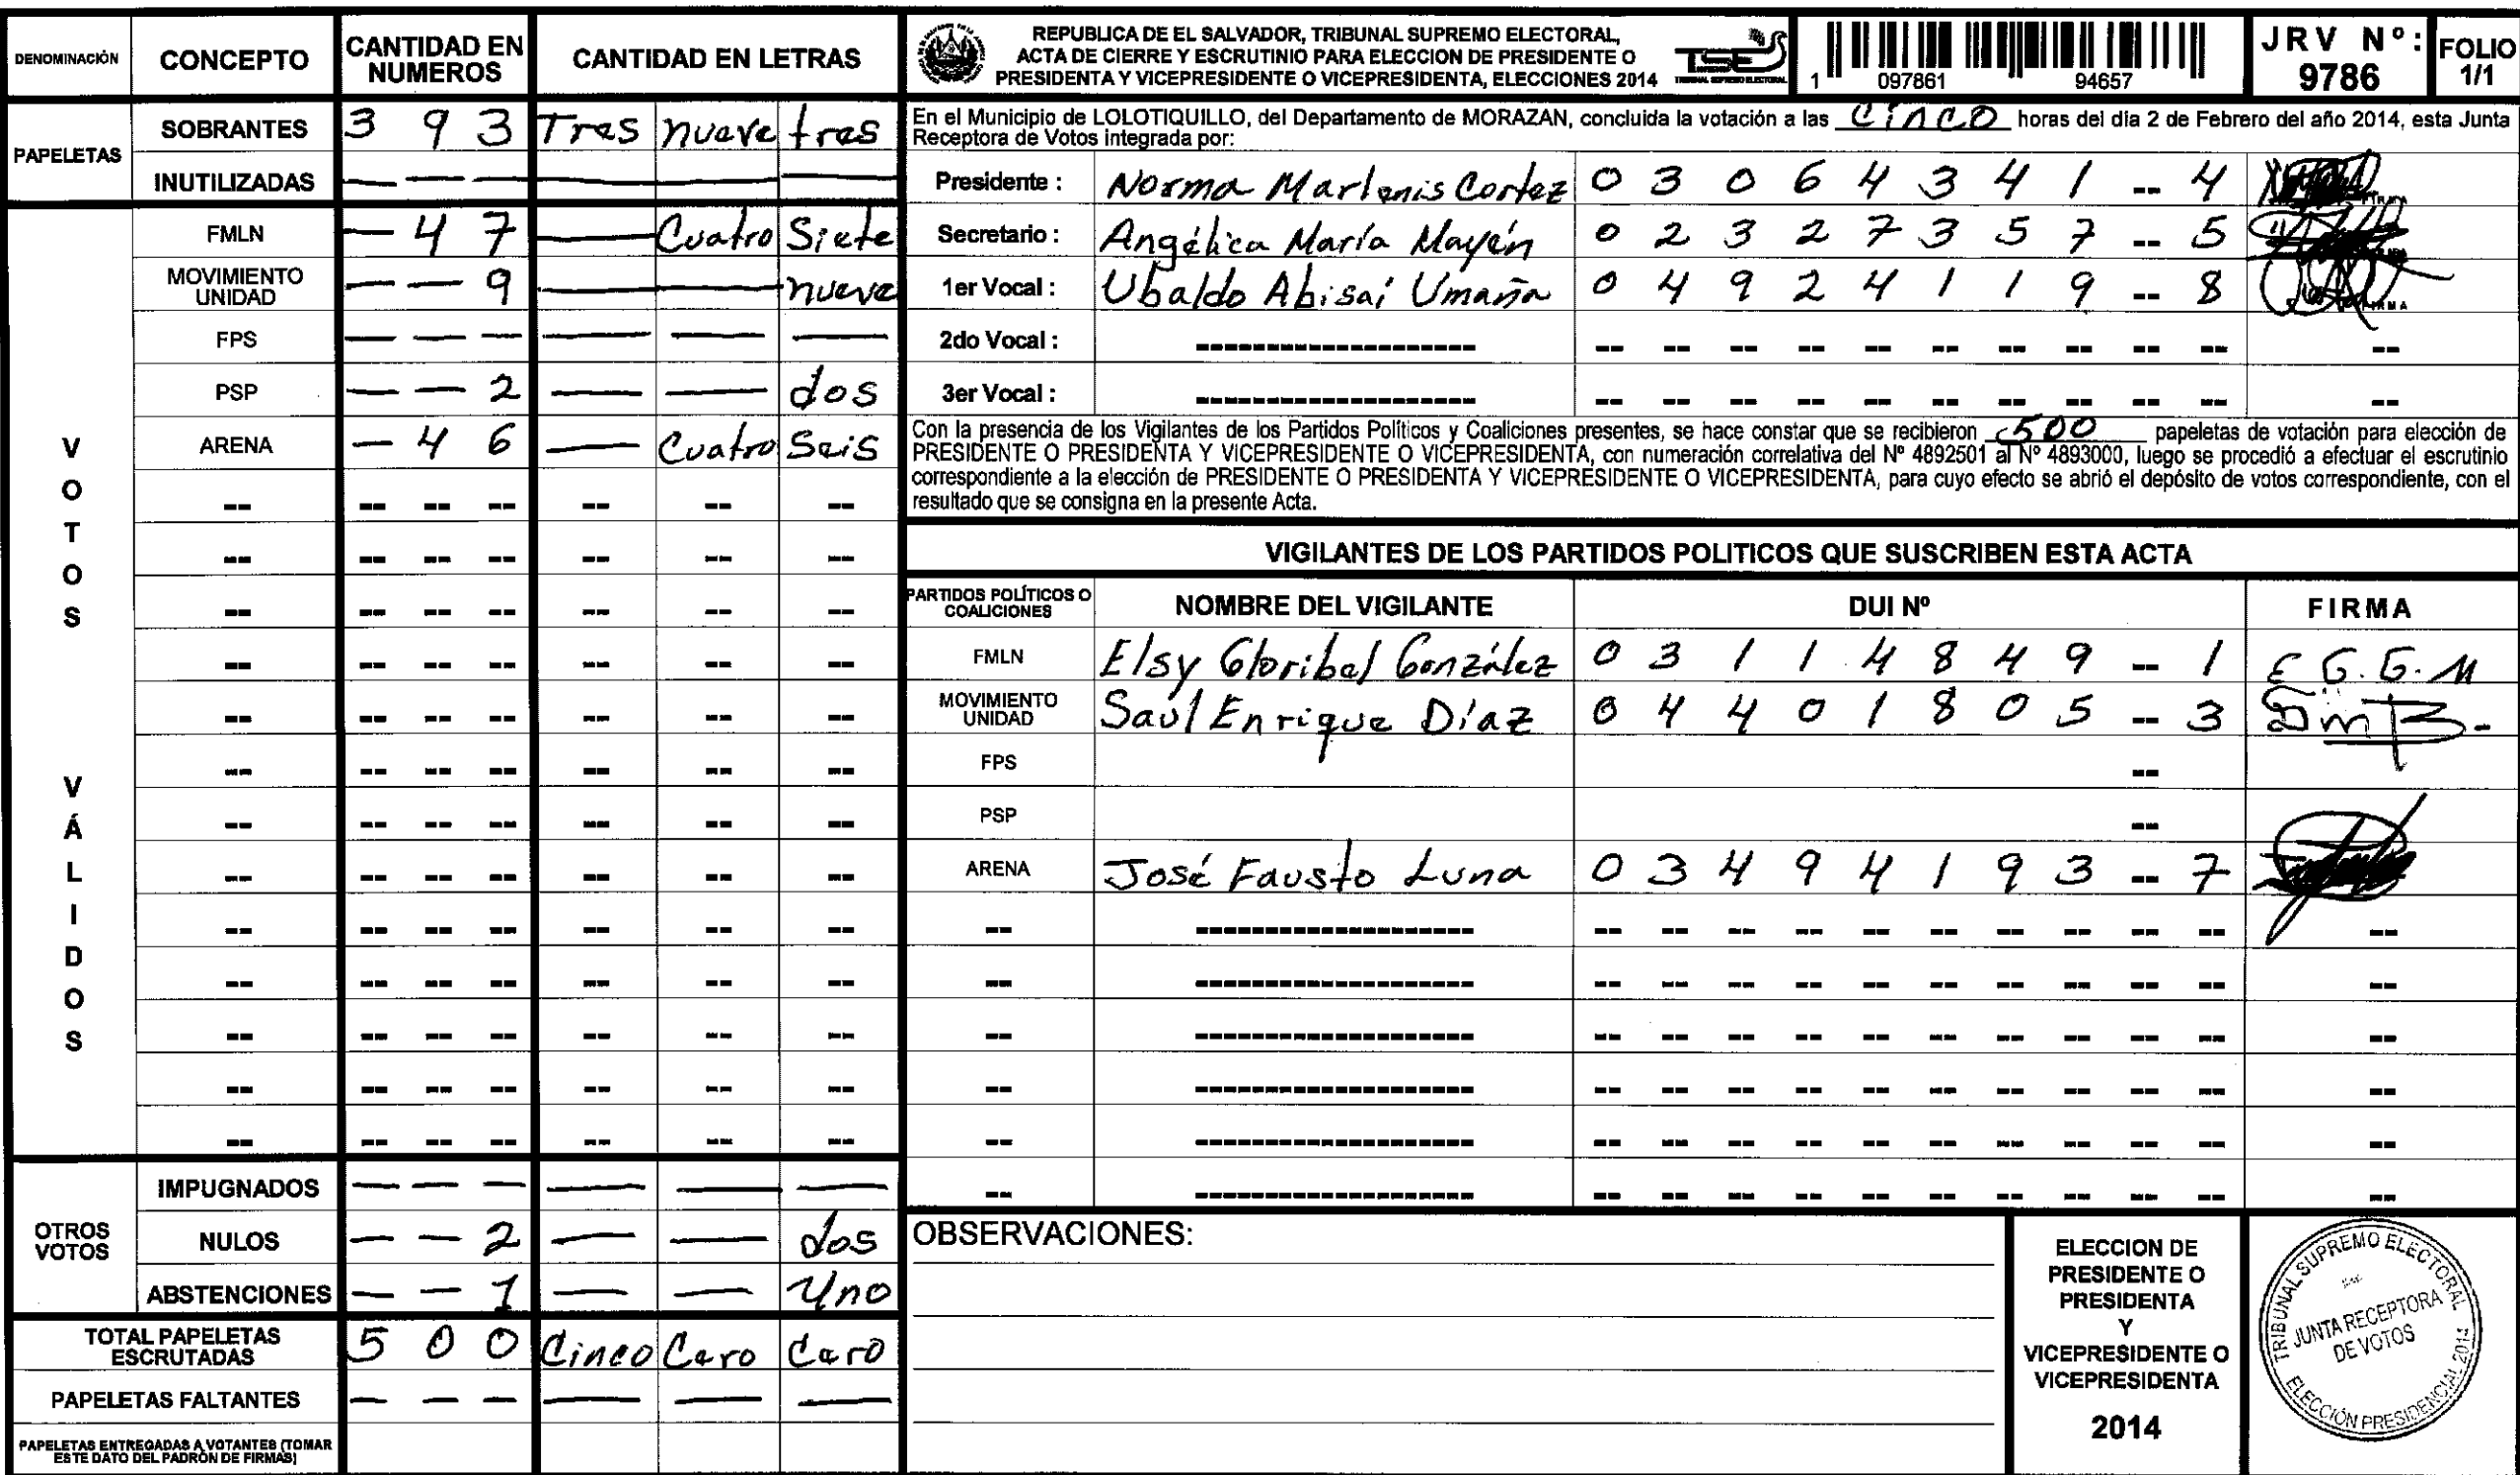 DENOMINACIÓN CONCEPTO CANTIDAD EN NUMEROS CANTIDAD EN LETRAS
PAPELETAS
SOBRANTES 3 9 3 Tres nueve tres
INUTILIZADAS — — — — — —
VOTOS VÁLIDOS
FMLN — 4 7 — Cuatro Siete
MOVIMIENTO UNIDAD — — 9 — — nueve
FPS — — — — — —
PSP — — 2 — — dos
ARENA — 4 6 — Cuatro Seis
OTROS VOTOS
IMPUGNADOS — — — — — —
NULOS — — 2 — — dos
ABSTENCIONES — — 1 — — Uno
TOTAL PAPELETAS ESCRUTADAS 5 0 0 Cinco Cero Cero
PAPELETAS FALTANTES — — — — — —
PAPELETAS ENTREGADAS A VOTANTES (TOMAR
ESTE DATO DEL PADRÓN DE FIRMAS)
REPUBLICA DE EL SALVADOR, TRIBUNAL SUPREMO ELECTORAL,
ACTA DE CIERRE Y ESCRUTINIO PARA ELECCION DE PRESIDENTE O
PRESIDENTA Y VICEPRESIDENTE O VICEPRESIDENTA, ELECCIONES 2014
TSE
1 097861 94657
JRV Nº: 9786
FOLIO 1/1
En el Municipio de LOLOTIQUILLO, del Departamento de MORAZAN, concluida la votación a las CINCO horas del día 2 de Febrero del año 2014, esta Junta
Receptora de Votos integrada por:
Presidente : Norma Marlenis Cortez 0 3 0 6 4 3 4 1 -- 4
Secretario : Angélica María Mayén 0 2 3 2 7 3 5 7 -- 5
1er Vocal : Ubaldo Abisaí Umaña 0 4 9 2 4 1 1 9 -- 8
2do Vocal :
3er Vocal :
Con la presencia de los Vigilantes de los Partidos Políticos y Coaliciones presentes, se hace constar que se recibieron 500 papeletas de votación para elección de
PRESIDENTE O PRESIDENTA Y VICEPRESIDENTE O VICEPRESIDENTA, con numeración correlativa del Nº 4892501 al Nº 4893000, luego se procedió a efectuar el escrutinio
correspondiente a la elección de PRESIDENTE O PRESIDENTA Y VICEPRESIDENTE O VICEPRESIDENTA, para cuyo efecto se abrió el depósito de votos correspondiente, con el
resultado que se consigna en la presente Acta.
VIGILANTES DE LOS PARTIDOS POLITICOS QUE SUSCRIBEN ESTA ACTA
PARTIDOS POLÍTICOS O COALICIONES NOMBRE DEL VIGILANTE DUI Nº FIRMA
FMLN Elsy Gloribel González 0 3 1 1 4 8 4 9 -- 1 E G. G. M
MOVIMIENTO UNIDAD Saúl Enrique Díaz 0 4 4 0 1 8 0 5 -- 3
FPS --
PSP --
ARENA José Fausto Luna 0 3 4 9 4 1 9 3 -- 7
OBSERVACIONES:
ELECCION DE
PRESIDENTE O
PRESIDENTA
Y
VICEPRESIDENTE O
VICEPRESIDENTA
2014
TRIBUNAL SUPREMO ELECTORAL
JUNTA RECEPTORA
DE VOTOS
ELECCIÓN PRESIDENCIAL 2014